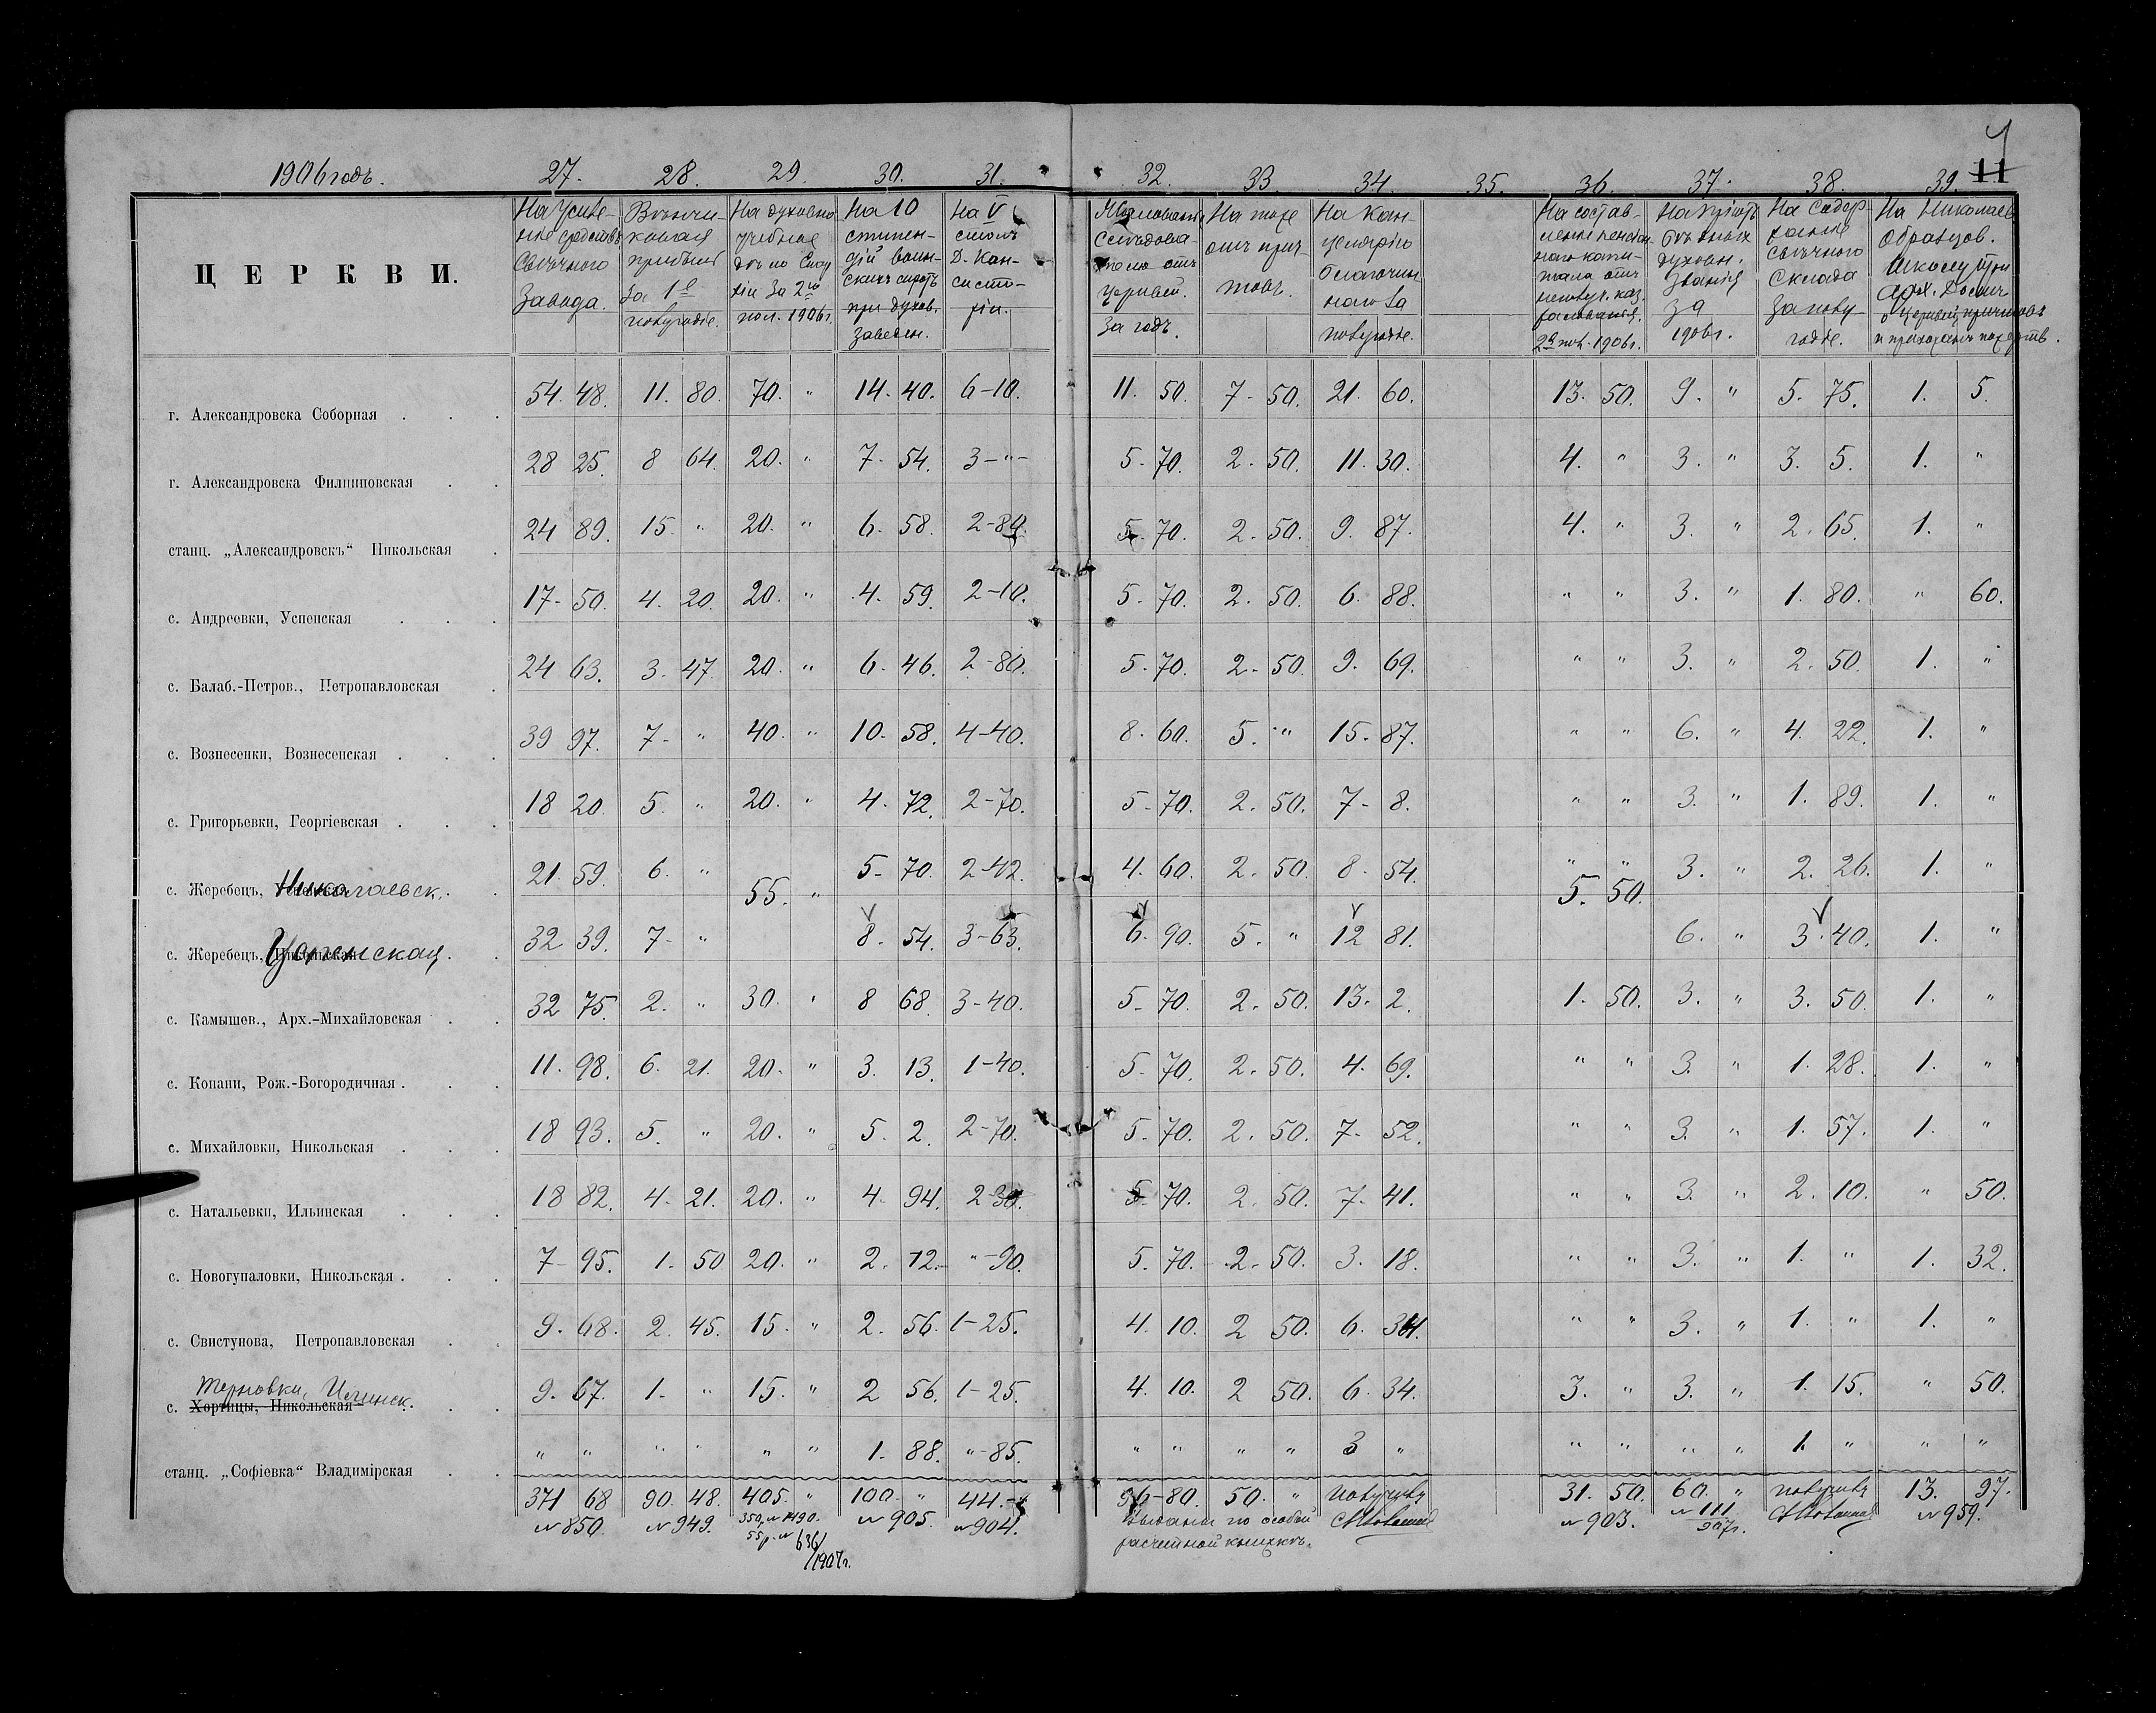 1906 годъ. 27. 28. 29. 30. 31. 32. 33. 34. 35. 36. 37. 38. 39. 11
ЦЕРКВИ.
На усиленіе средствъ Свѣчного Завода.
Вѣнчиковая прибыль за 1е полугодіе.
На духовно учебные за 2ю пол. 1906 г.
На 10 стипендій воинскихъ сиротъ при духов. заведен.
На V столъ Д. Консисторіи.
Жалованье отъ церквей. За годъ.
На тоже отъ причтовъ.
На канцелярію благочиннаго за полугодіе.
На составленіе пенсіоннаго капитала отъ 2е пол. 1906 г.
На пріютъ бѣдныхъ духовн. званія за 1906 г.
На содержаніе свѣчного склада за полугодіе.
На Николаев. образцов. школу при
г. Александровска Соборная . . . 54. 48. 11. 80. 70. " 14. 40. 6-10. 11. 50. 7. 50. 21. 60. 13. 50. 9. " 5. 75. 1. 5.
г. Александровска Филипповская . . 28 25. 8 64. 20. " 7. 54. 3-"- 5. 70. 2. 50. 11. 30. 4. " 3. " 3. 5. 1. "
станц. „Александровскъ“ Никольская . 24 89. 15. " 20. " 6. 58. 2-80. 5. 70. 2. 50. 9. 87. 4. " 3. " 2. 65. 1. "
с. Андреевки, Успенская . . . 17. 50. 4. 20. 20. " 4. 59. 2-10. 5. 70. 2. 50. 6. 88. " " 3. " 1. 80. " 60.
с. Балаб.-Петров., Петропавловская . 24 63. 3. 47. 20. " 6. 46. 2-80. 5. 70. 2. 50. 9. 69. " " 3. " 2. 50. 1. "
с. Вознесенки, Вознесенская . . . 39 97. 7. " 40. " 10. 58. 4-40. 8. 60. 5. " 15. 87. " " 6. " 4. 22. 1. "
с. Григорьевки, Георгіевская . . . 18 20. 5. " 20. " 4. 72. 2-70. 5. 70. 2. 50. 7. 8. " " 3. " 1. 89. 1. "
с. Жеребецъ, Николаевск. . . 21. 59. 6. " 55. " 5. 70. 2-42. 4. 60. 2. 50. 8. 54. " " 5. 50. 3. " 2. 26. 1. "
с. Жеребецъ, Успенская . . 32 39. 7. " 8. 54. 3-63. 6. 90. 5. " 12 81. 6. " 3. 40. 1. "
с. Камышев., Арх.-Михайловская . . 32 75. 2. " 30. " 8 68. 3-40. 5. 70. 2. 50. 13. 2. 1. 50. 3. " 3. 50. 1. "
с. Копани, Рож.-Богородичная . . . 11. 98. 6. 21. 20. " 3. 13. 1-40. 5. 70. 2. 50. 4. 69. " " 3. " 1. 28. 1. "
с. Михайловки, Никольская . . . 18 93. 5. " 20. " 5. 2. 2-70. 5. 70. 2. 50. 7. 52. " " 3. " 1. 57. 1. "
с. Натальевки, Ильинская . . . 18 82. 4. 21. 20. " 4. 94. 2-30. 5. 70. 2. 50. 7. 41. " " 3. " 2. 10. " 50.
с. Новогупаловки, Никольская . . . 7 95. 1. 50 20. " 2. 12. "-90. 5. 70. 2. 50. 3. 18. " " 3. " 1. " 1. 32.
с. Свистунова, Петропавловская . . 9. 68. 2. 45. 15. " 2. 56. 1-25. 4. 10. 2 50. 6. 34. " " 3. " 1. " 1. "
Терновки,
с. Хортицы, Никольская . . . 9. 67. 1. " 15. " 2 56. 1-25. 4. 10. 2 50. 6. 34. 3. " 3. " 1. 15. " 50.
станц. „Софіевка“ Владимірская . . " " " " " " 1. 88. "-85. " " " " 3 " " " " " 1. " " "
371 68 90. 48. 405. " 100. " 44. 96-80. 50. " получилъ 31. 50. 60. " получилъ 13. 97.
№ 850. № 949. 350 р. № 1490. № 905. № 904. Выданы по особой № 903. № 111. № 959.
55 р. № 636 расчетной книжкѣ. 907 г.
1907 г.